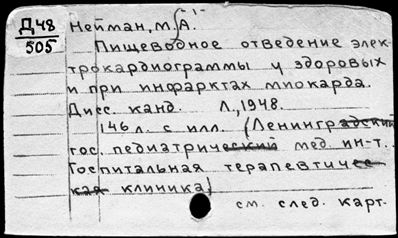 Д48
505
Нейман, М.А.
Пищеводное отведение элек-
трокардиограммы у здоровых
и при инфарктах миокарда.
Дисс. канд. Л., 1948.
146 л. с илл. (Ленинградский
гос. педиатрический мед. ин-т.
Госпитальная терапевтичес-
кая клиника)
см. след. карт.